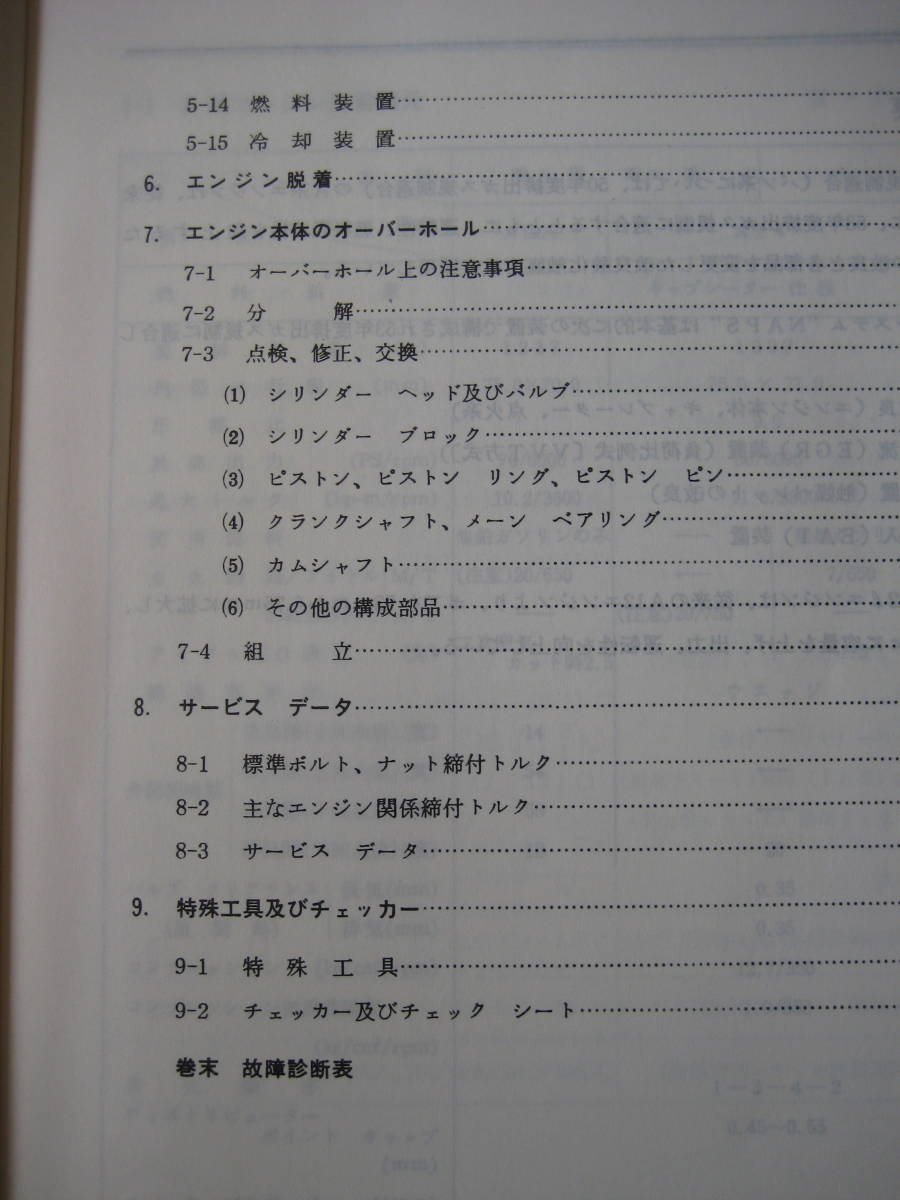 5-14 燃料装置
5-15 冷却装置
6. エンジン脱着
7. エンジン本体のオーバーホール
7-1 オーバーホール上の注意事項
7-2 分解
7-3 点検、修正、交換
(1) シリンダー ヘッド及びバルブ
(2) シリンダー ブロック
(3) ピストン、ピストン リング、ピストン ピン
(4) クランクシャフト、メーン ベアリング
(5) カムシャフト
(6) その他の構成部品
7-4 組立
8. サービス データ
8-1 標準ボルト、ナット締付トルク
8-2 主なエンジン関係締付トルク
8-3 サービス データ
9. 特殊工具及びチェッカー
9-1 特殊工具
9-2 チェッカー及びチェック シート
巻末 故障診断表